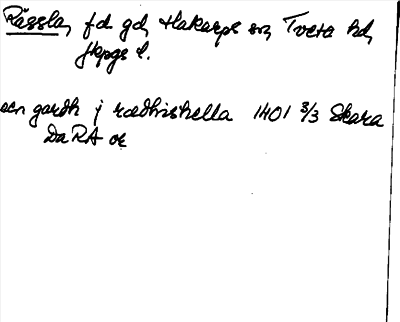 Rässla, f.d. gd, Hakarps sn, Tveta hd,
Jkpgs l.
een gardh j rædhishella 1401 3/3 Skara
Da RA or